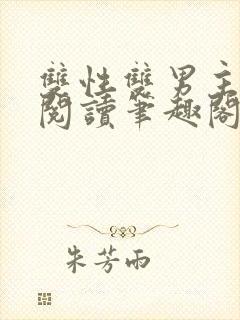 雙性雙男主
閱讀筆趣閣
朱芳雨